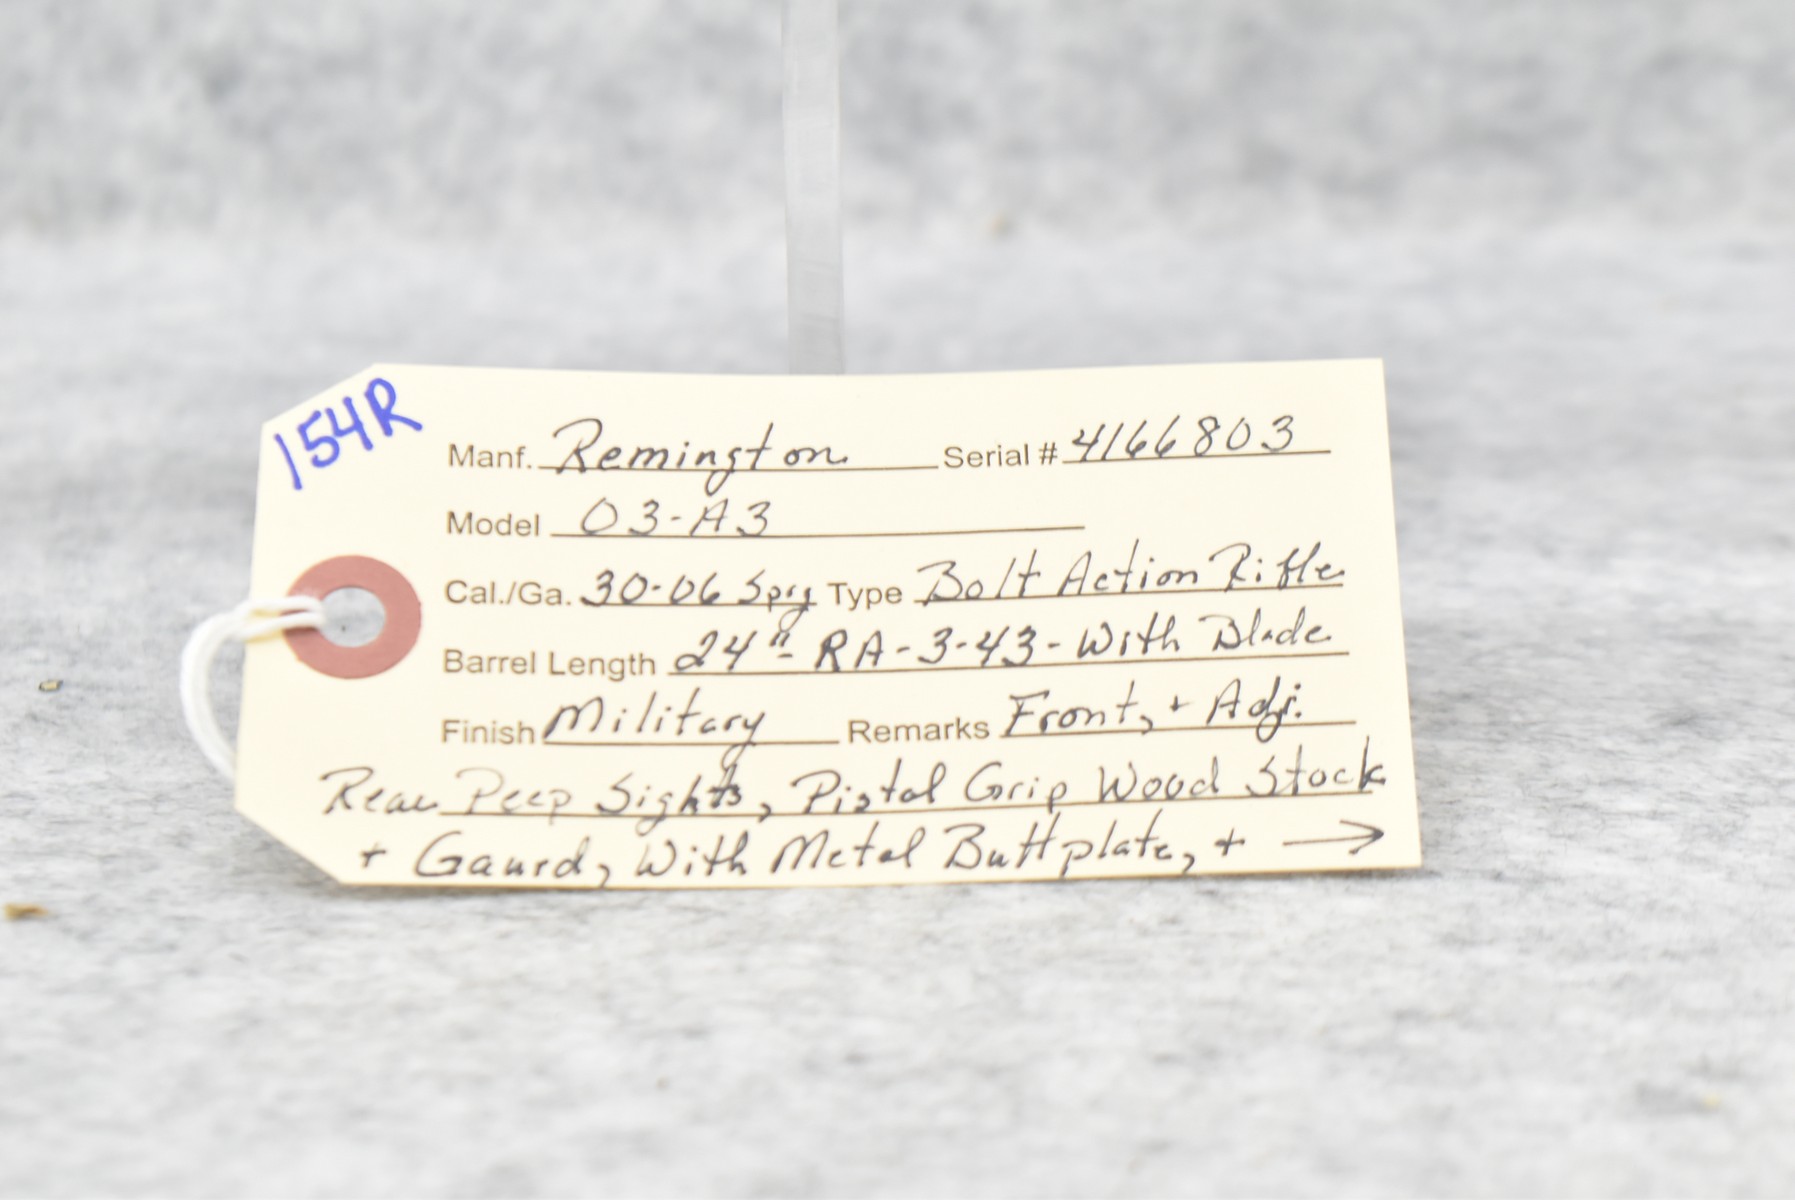 154R
Manf. Remington Serial # 4166803
Model 03-A3
Cal./Ga. 30-06 Sprg Type Bolt Action Rifle
Barrel Length 24"- RA-3-43- With Blade
Finish Military Remarks Front, + Adj.
Rear Peep Sights, Pistol Grip Wood Stock
+ Gaurd, With Metal Buttplate, + →